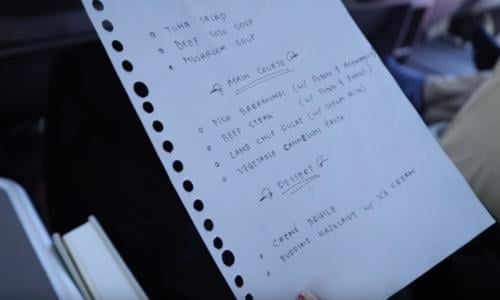 TUNA SALAD
BEEF SOTO SOUP
MUSHROOM SOUP
MAIN COURSE
FISH BARAMUNDI (W/ POTATO &
BEEF STEAK (W/ POTATO &
LAMB CHOP GULAI (W/ RICE)
VEGETABLE CANNELONI PASTA
DESSERT
CREME BRULLE
PUDDING HAZELNUT W/ ICE CREAM